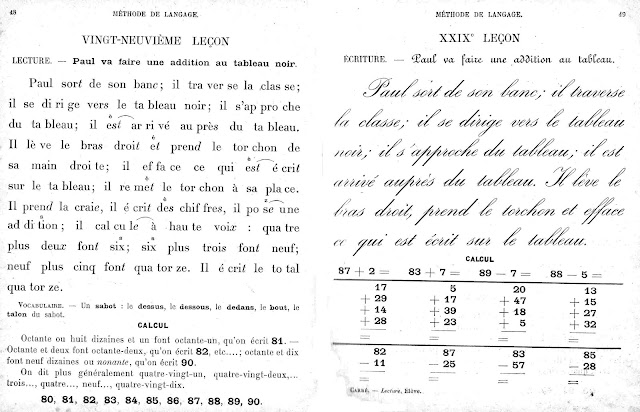 48
MÉTHODE DE LANGAGE.
VINGT-NEUVIÈME LEÇON
LECTURE. — Paul va faire une addition au tableau noir.
Paul sort de son banc; il tra ver se la clas se;
il se di ri ge vers le ta bleau noir; il s'ap pro che
du ta bleau; il est ar ri vé au près du ta bleau.
Il lè ve le bras droit et prend le tor chon de
sa main droi te; il ef fa ce ce qui est é crit
sur le ta bleau; il re met le tor chon à sa pla ce.
Il prend la craie, il é crit des chif fres, il po se une
ad di tion; il cal cu le à hau te voix : qua tre
plus deux font six; six plus trois font neuf;
neuf plus cinq font qua tor ze. Il é crit le to tal
qua tor ze.
VOCABULAIRE. — Un sabot : le dessus, le dessous, le dedans, le bout, le
talon du sabot.
CALCUL
Octante ou huit dizaines et un font octante-un, qu'on écrit 81. —
Octante et deux font octante-deux, qu'on écrit 82, etc....; octante et dix
font neuf dizaines ou nonante, qu'on écrit 90.
On dit plus généralement quatre-vingt-un, quatre-vingt-deux,...
trois..., quatre..., neuf..., quatre-vingt-dix.
80, 81, 82, 83, 84, 85, 86, 87, 88, 89, 90.
MÉTHODE DE LANGAGE.
49
XXIXe LEÇON
ÉCRITURE. — Paul va faire une addition au tableau.
Paul sort de son banc; il traverse
la classe; il se dirige vers le tableau
noir; il s'approche du tableau; il est
arrivé auprès du tableau. Il lève le
bras droit, prend le torchon et efface
ce qui est écrit sur le tableau.
CALCUL
87 + 2 = 83 + 7 = 89 − 7 = 88 − 5 =
17 5 20 13
+ 29 + 17 + 47 + 15
+ 14 + 39 + 18 + 27
+ 28 + 23 + 5 + 32
= = = =
82 87 83 85
− 11 − 25 − 57 − 28
= = = =
CARRÉ. — Lecture, Élève.